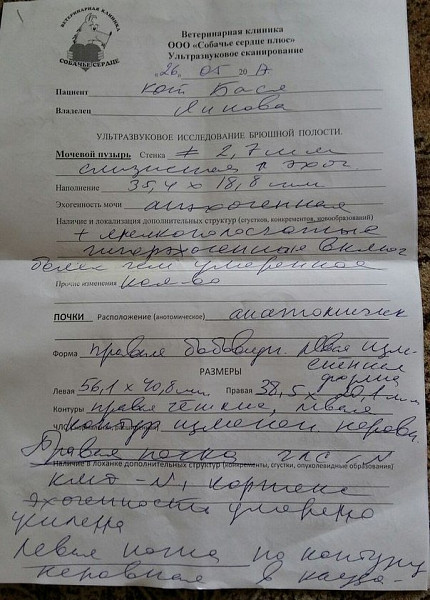 ВЕТЕРИНАРНАЯ КЛИНИКА
СОБАЧЬЕ СЕРДЦЕ
Ветеринарная клиника
ООО «Собачье сердце плюс»
Ультразвуковое сканирование
«26» 05 2017
Пациент кот Бася
Владелец
УЛЬТРАЗВУКОВОЕ ИССЛЕДОВАНИЕ БРЮШНОЙ ПОЛОСТИ.
Мочевой пузырь Стенка ≠ 2,7 мм
слизистая ↑ эхог.
Наполнение 35,4 х 18,8 мм
Эхогенность мочи анэхогенная
Наличие и локализация дополнительных структур (сгустков, конкрементов, новообразований)
+
гиперэхогенные включ
более чем умеренное
Прочие изменения кол-во
ПОЧКИ Расположение (анатомическое) анатомичн
Форма правая бобовидн. левая изме
ненная
форма
РАЗМЕРЫ
Левая 56,1 х 40,8 мм Правая 38,5 х мм
Контуры правая чёткие, левая
контур изменен неровн.
Правая почка ЧЛС N
Наличие в лоханке дополнительных структур (конкременты, сгустки, опухолевидные образования)
КМД -N, кортекс
эхогенности умеренно
Левая почка по контуру
неровная в